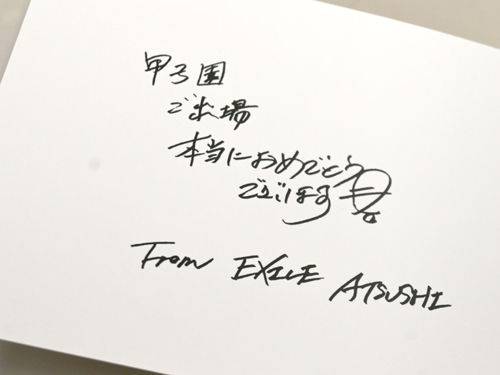 甲子園
ご出場
本当におめでとう
ございます
From EXILE ATSUSHI